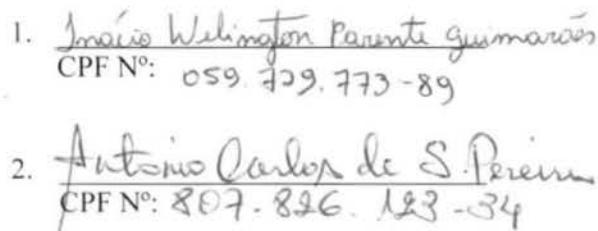 1. Inácio Welington Parente Guimarães
CPF Nº: 059.729.773-89
2. Antonio Carlos de S. Pereira
CPF Nº: 807.826.123-34